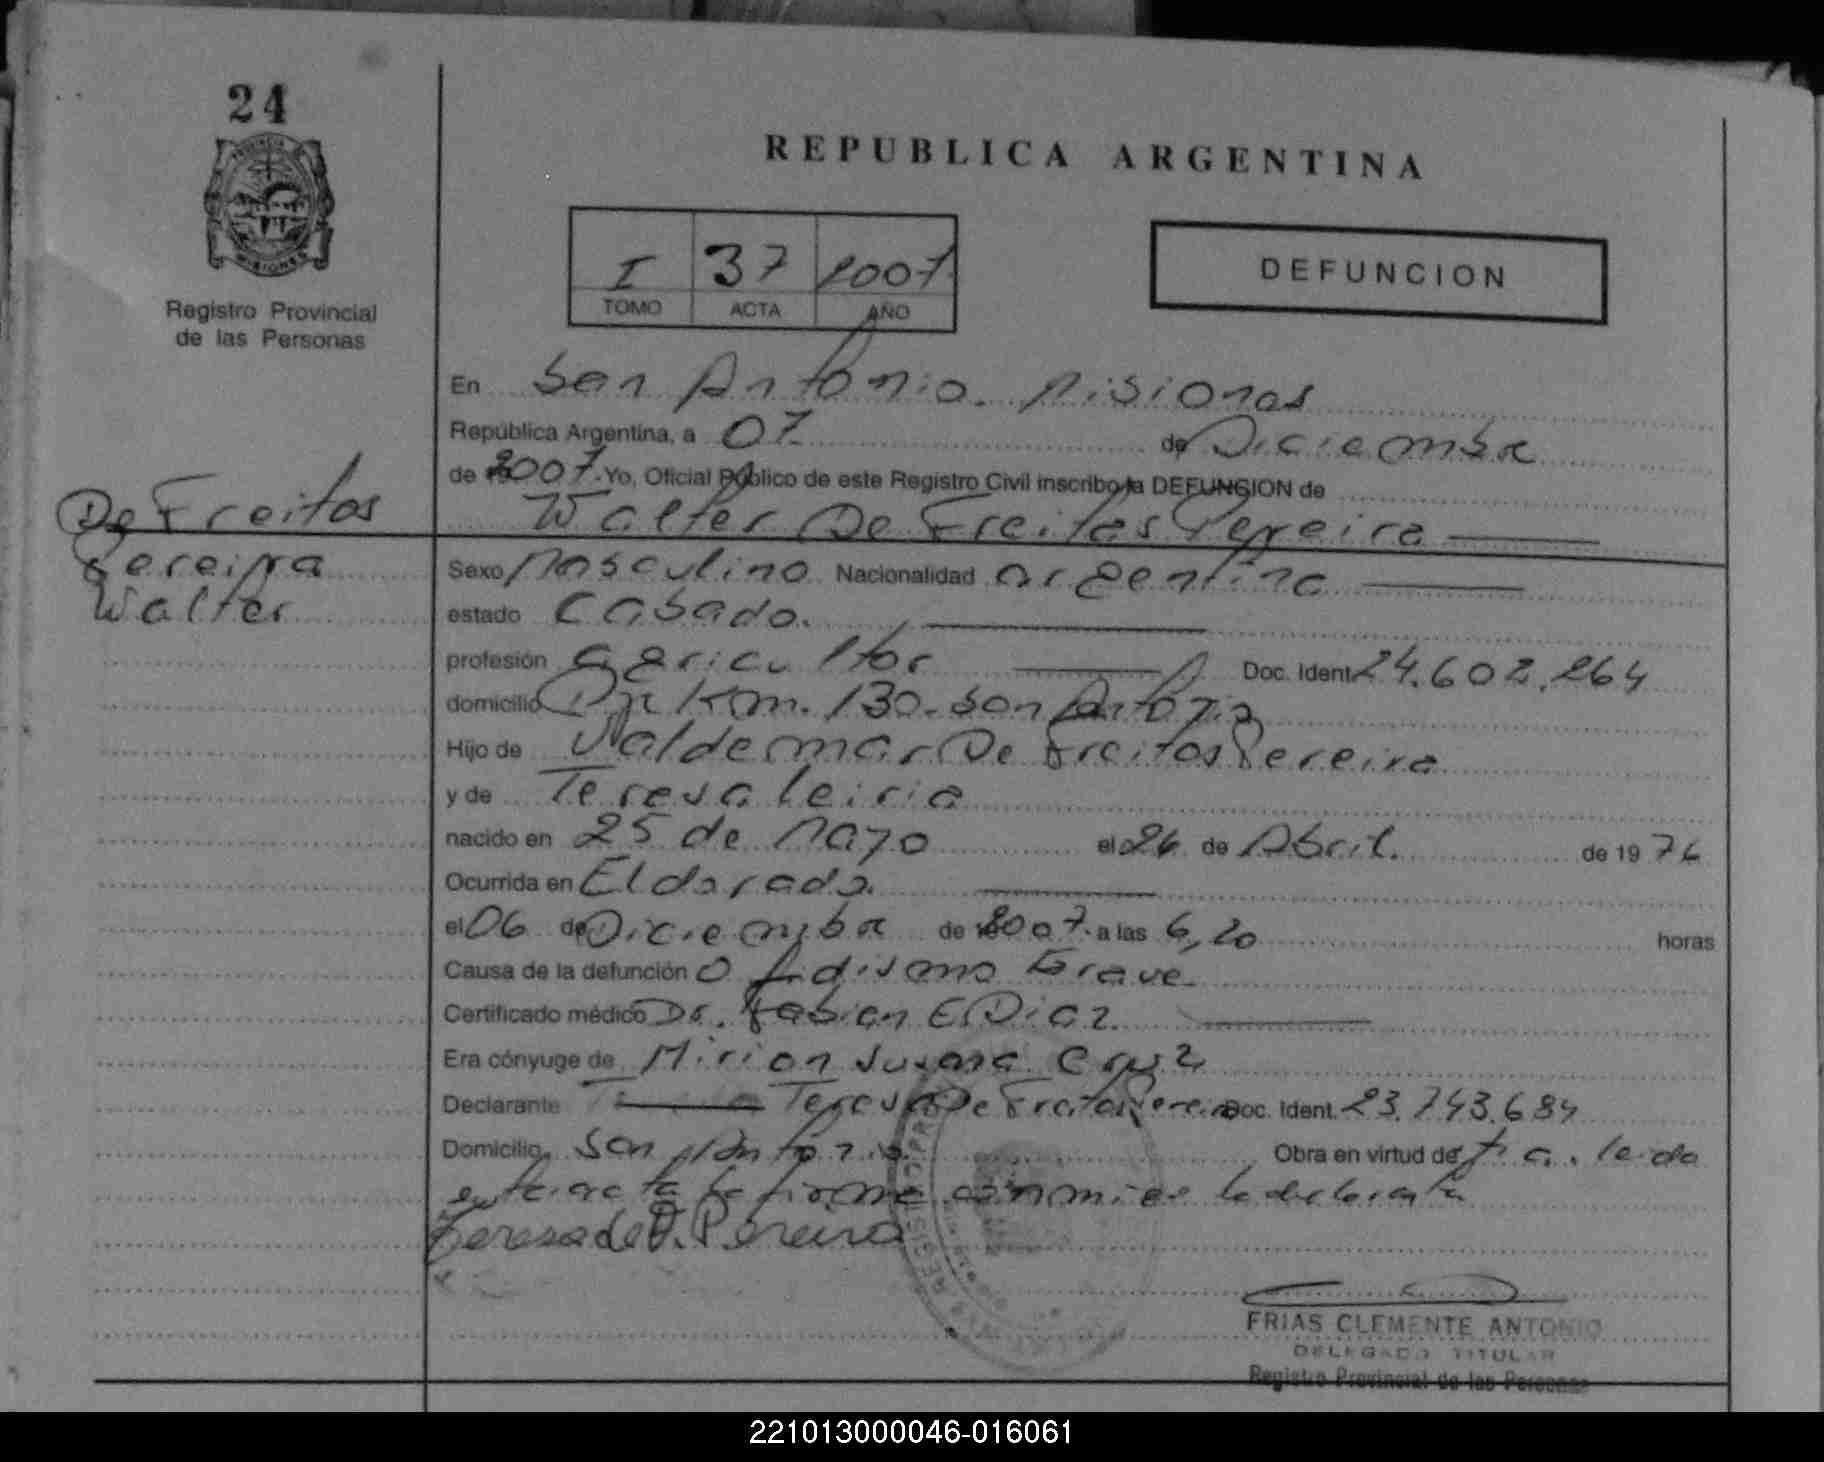 24
PROVINCIA
MISIONES
Registro Provincial
de las Personas
REPUBLICA ARGENTINA
I 37 2007
TOMO ACTA AÑO
DEFUNCION
En San Antonio. Misiones
República Argentina, a 07 de Diciembre
de 2007. Yo, Oficial Público de este Registro Civil inscribo la DEFUNSION de
De Freitas
Walter De Freitas Pereira
Pereira
Walter
Sexo Masculino Nacionalidad argentina
estado Casado.
profesión agricultor Doc. Ident. 24.602.264
domicilio Km. 130. San Antonio
Hijo de Valdemar De Freitas Pereira
y de Teresa leiria
nacido en 25 de Mayo el 26 de Abril. de 1976
Ocurrida en Eldorado.
el 06 de Diciembre de 2007. a las 6,20 horas
Causa de la defunción Ofidismo Grave.
Certificado médico Dr. Fabian E. Diaz.
Era cónyuge de Mirian Susana Cruz
Declarante Teresa De Freitas Pereira Doc. Ident. 23.743.684
Domicilio San Antonio Obra en virtud de leida
esta acta la firma conmigo la declarante
Teresa de F. Pereira
FRIAS CLEMENTE ANTONIO
DELEGADO TITULAR
Registro Provincial de las Personas
221013000046-016061